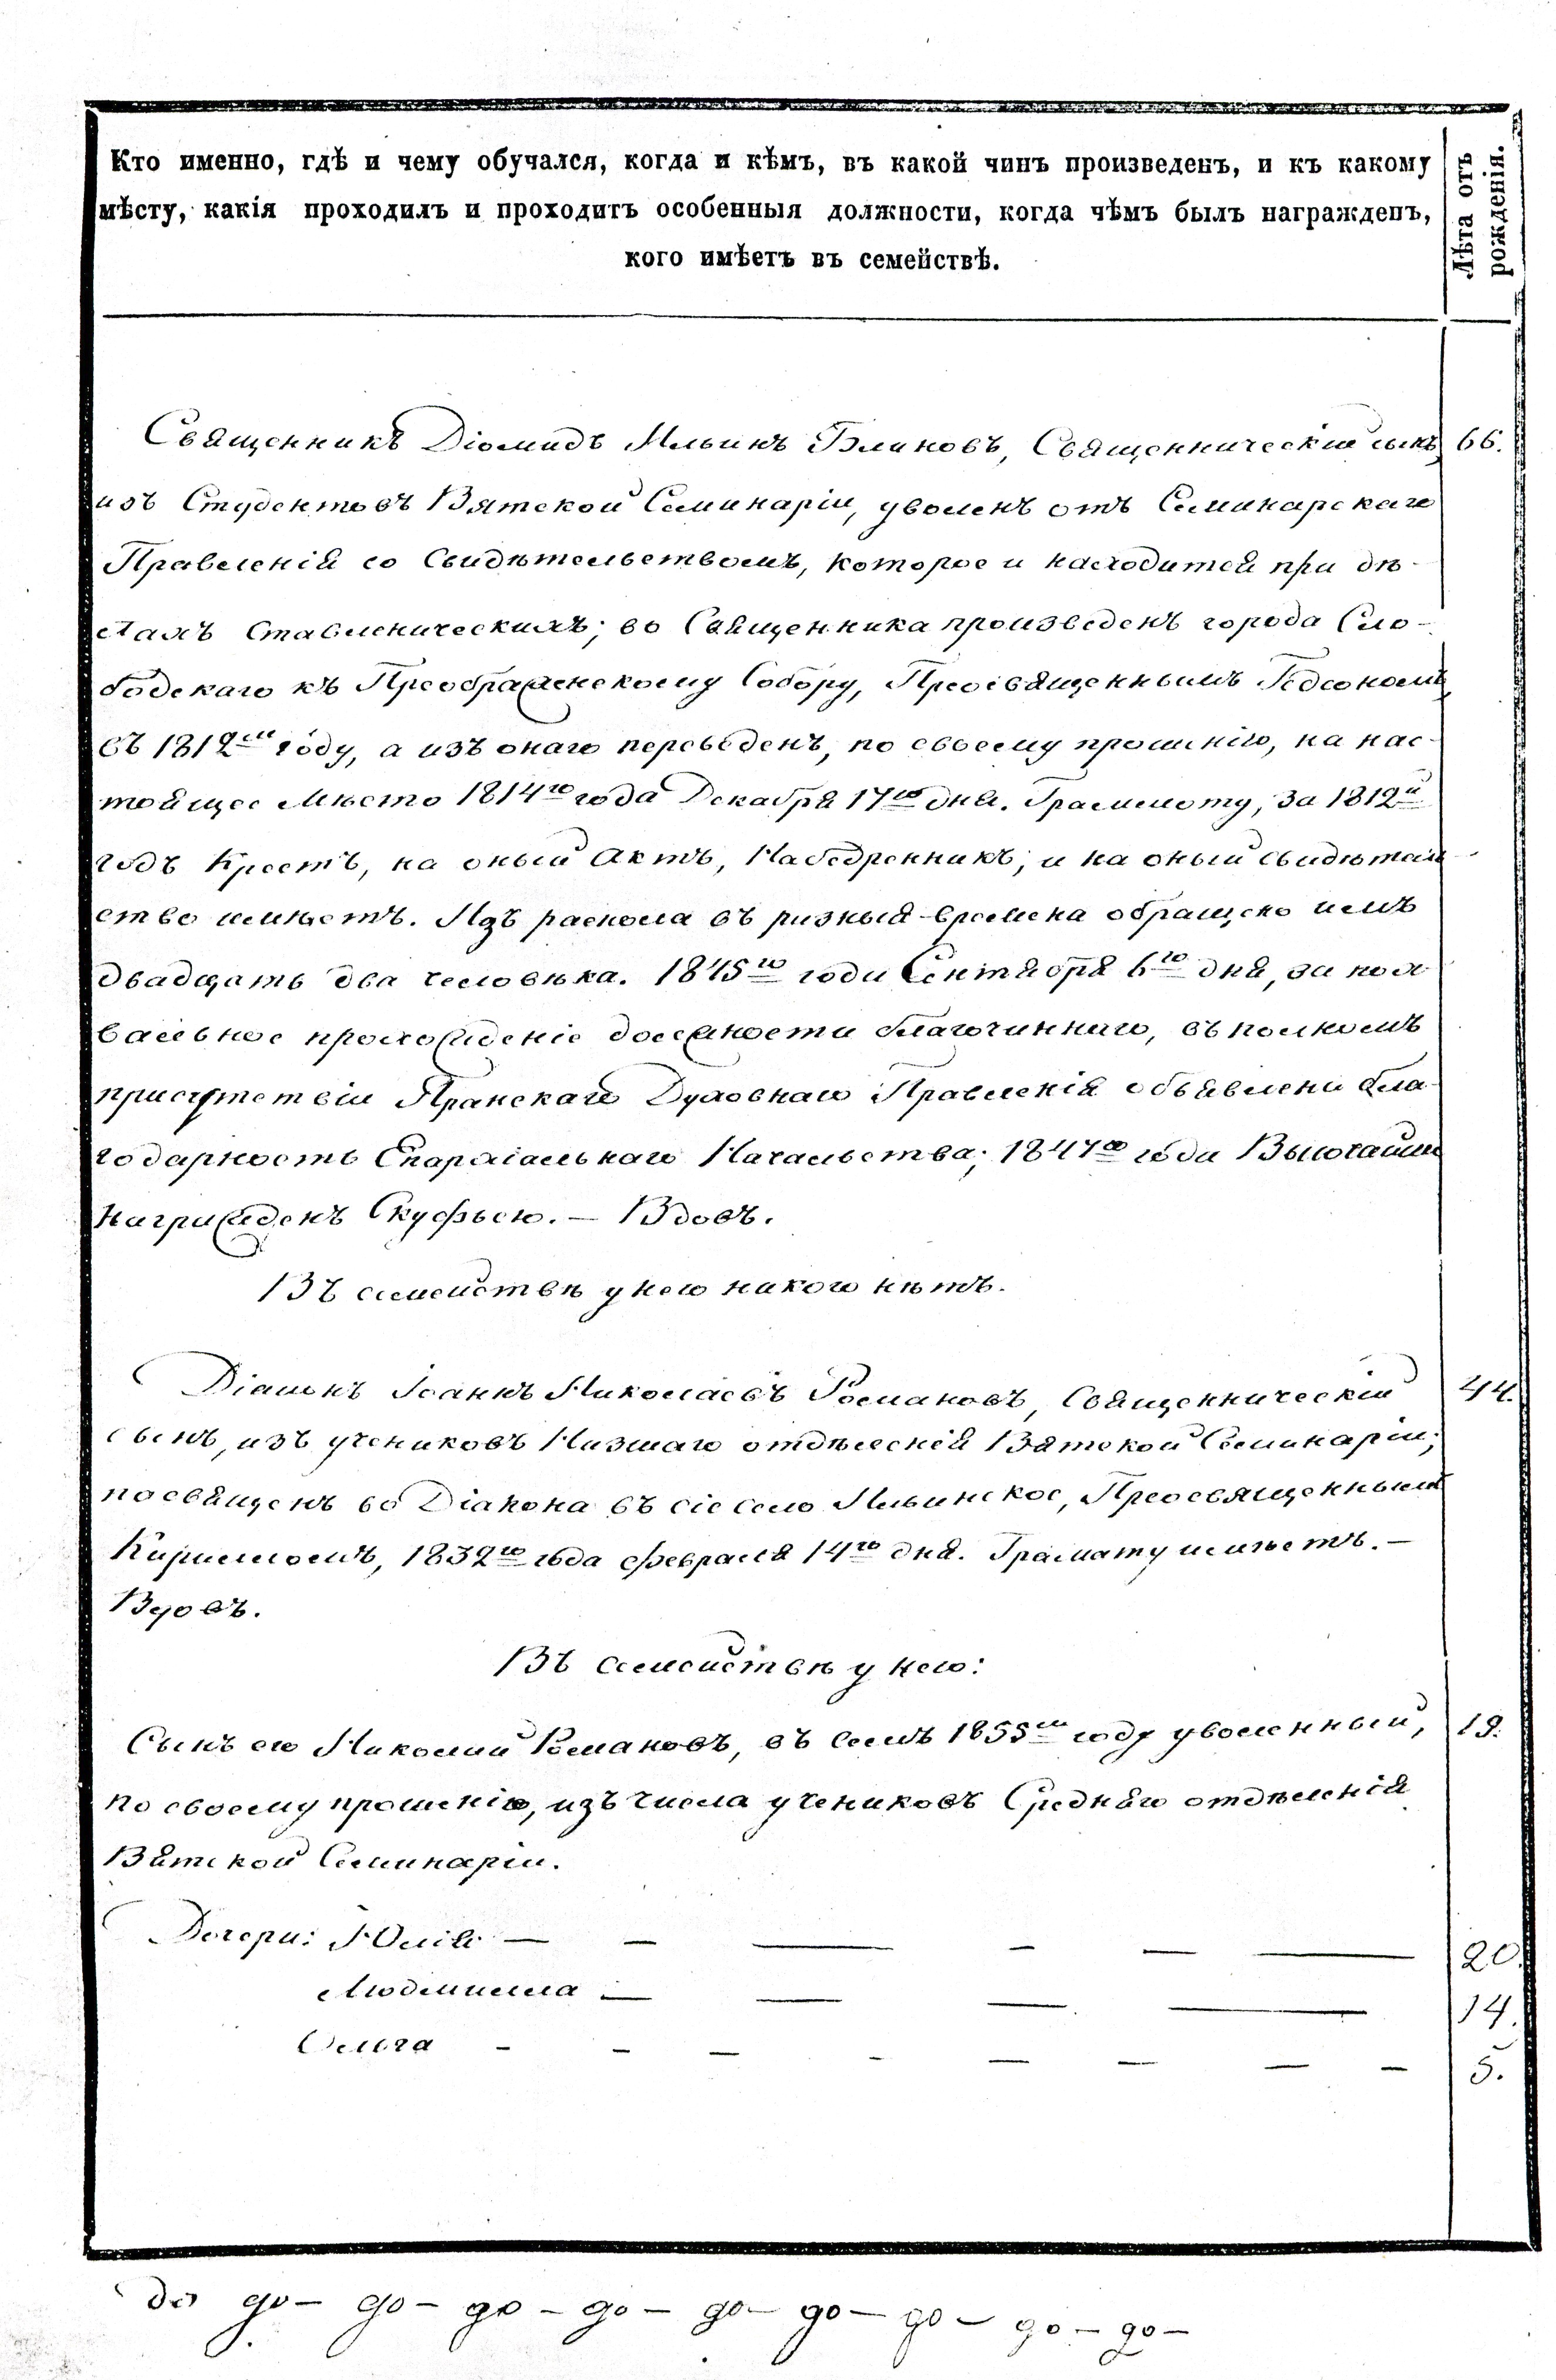 Кто именно, гдѣ и чему обучался, когда и кѣмъ, въ какой чинъ произведенъ, и къ какому
мѣсту, какія проходилъ и проходитъ особенныя должности, когда чѣмъ былъ награжденъ,
кого имѣетъ въ семействѣ.
Лѣта отъ
рожденія.
Священникъ Діомидъ Ильинъ Блиновъ, Священническій сынъ, 66.
изъ Студентовъ Вятской Семинаріи, уволенъ отъ Семинарскаго
Правленія со Свидѣтельствомъ, которое и находится при дѣ-
лахъ Ставленическихъ; во Священника произведенъ города Сло-
бодскаго къ Преображенскому Собору, Преосвященнымъ Гедеономъ,
въ 1812мъ году, а изъ онаго переведенъ, по своему прошенію, на нас-
тоящее Мѣсто 1814го года Декабря 17го дня. Граммоту, за 1812й
годъ Крестъ, на оный Актъ, Набедренникъ, и на оный свидѣтель-
ство имѣетъ. Изъ раскола въ разныя времена обращено имъ
двадцать два человѣка. 1845го года Сентября 6го дня, за пох-
вальное прохожденіе должности благочиннаго, въ полномъ
присутствіи Яранскаго Духовнаго Правленія объявлена бла-
годарность Епархіальнаго Начальства; 1847го года Высочайше
награжденъ Скуфьею. — Вдовъ.
Въ семействѣ у него никого нѣтъ.
Діаконъ Іоаннъ Николаевъ Романовъ, Священническій 44.
сынъ, изъ учениковъ Низшаго отдѣленія Вятской Семинаріи;
посвященъ во Діакона въ сіе село Ильинское, Преосвященнымъ
Кирилломъ, 1832го года февраля 14го дня. Грамату имѣетъ. —
Вдовъ.
Въ семействѣ у него:
Сынъ его Николай Романовъ, въ семъ 1855мъ году уволенный, 19.
по своему прошенію, изъ числа учениковъ Средняго отдѣленія
Вятской Семинаріи.
Дочери: Юлія — — — — — — 20.
Людмилла — — — — 14.
Ольга - - — - — — — — 5.
до до — до — до — до — до — до — до — до — до —